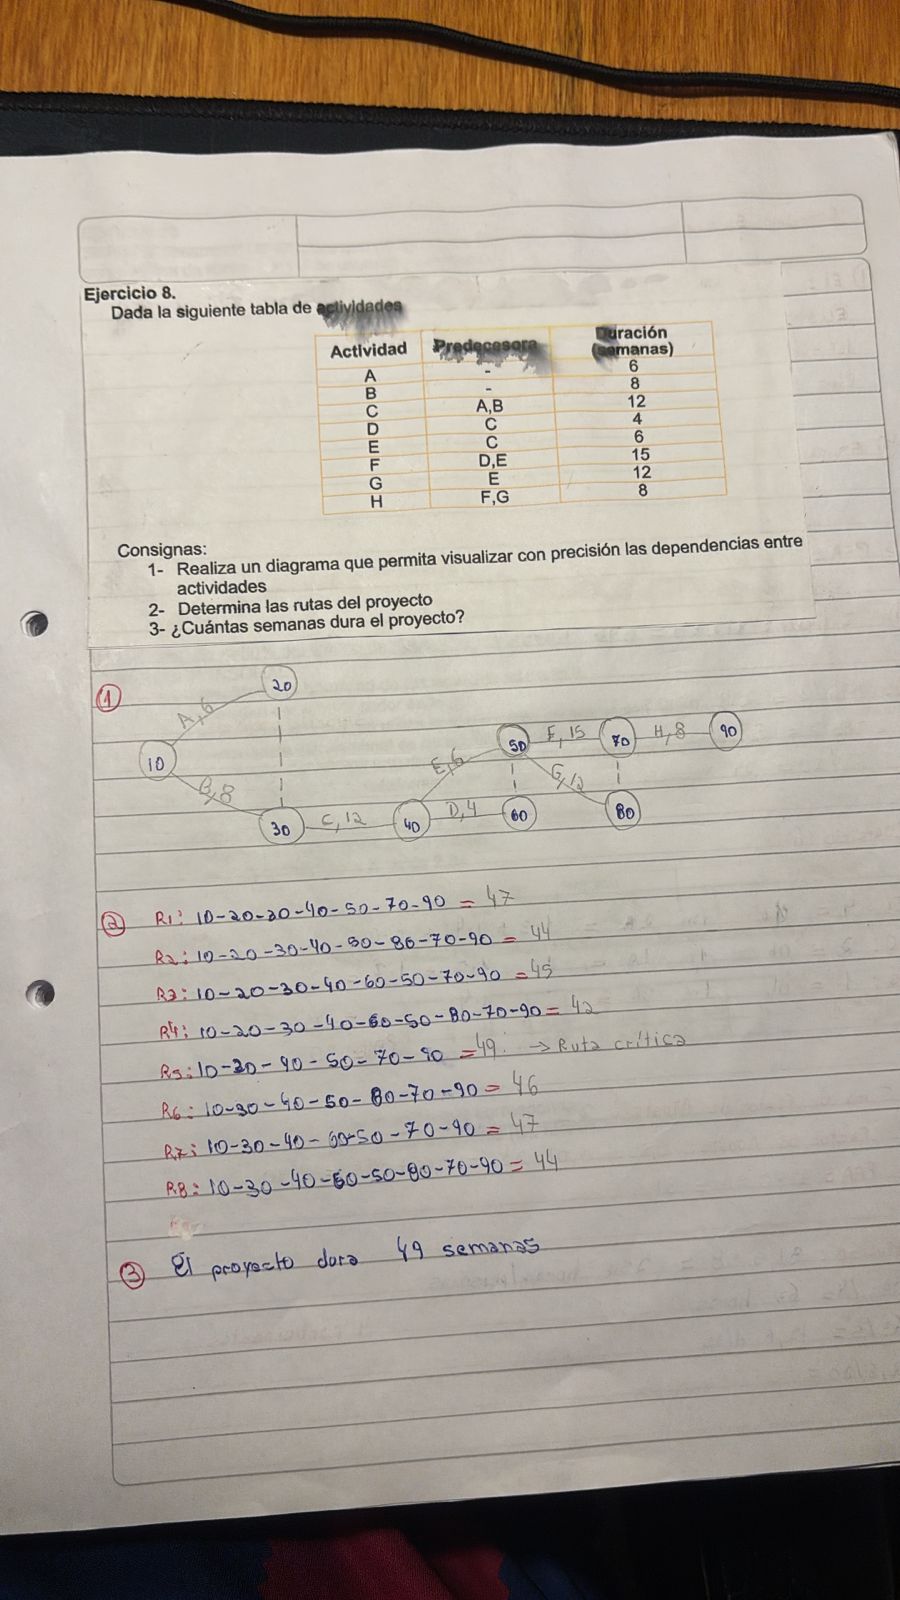 Ejercicio 8.
Dada la siguiente tabla de actividades
Actividad Predecesora Duración (semanas)
A - 6
B - 8
C A,B 12
D C 4
E C 6
F D,E 15
G E 12
H F,G 8
Consignas:
1- Realiza un diagrama que permita visualizar con precisión las dependencias entre
actividades
2- Determina las rutas del proyecto
3- ¿Cuántas semanas dura el proyecto?
1
20
A, 6
50 F, 15 70 H, 8 90
10
E, 6
G, 12
B, 8
30 C, 12 40 D, 4 60 80
2 R1: 10-20-30-40-50-70-90 = 47
R2: 10-20-30-40-50-80-70-90 = 44
R3: 10-20-30-40-60-50-70-90 = 45
R4: 10-20-30-40-60-50-80-70-90 = 42
R5: 10-30-40-50-70-90 = 49. → Ruta crítica
R6: 10-30-40-50-80-70-90 = 46
R7: 10-30-40-60-50-70-90 = 47
R8: 10-30-40-60-50-80-70-90 = 44
3 El proyecto dura 49 semanas